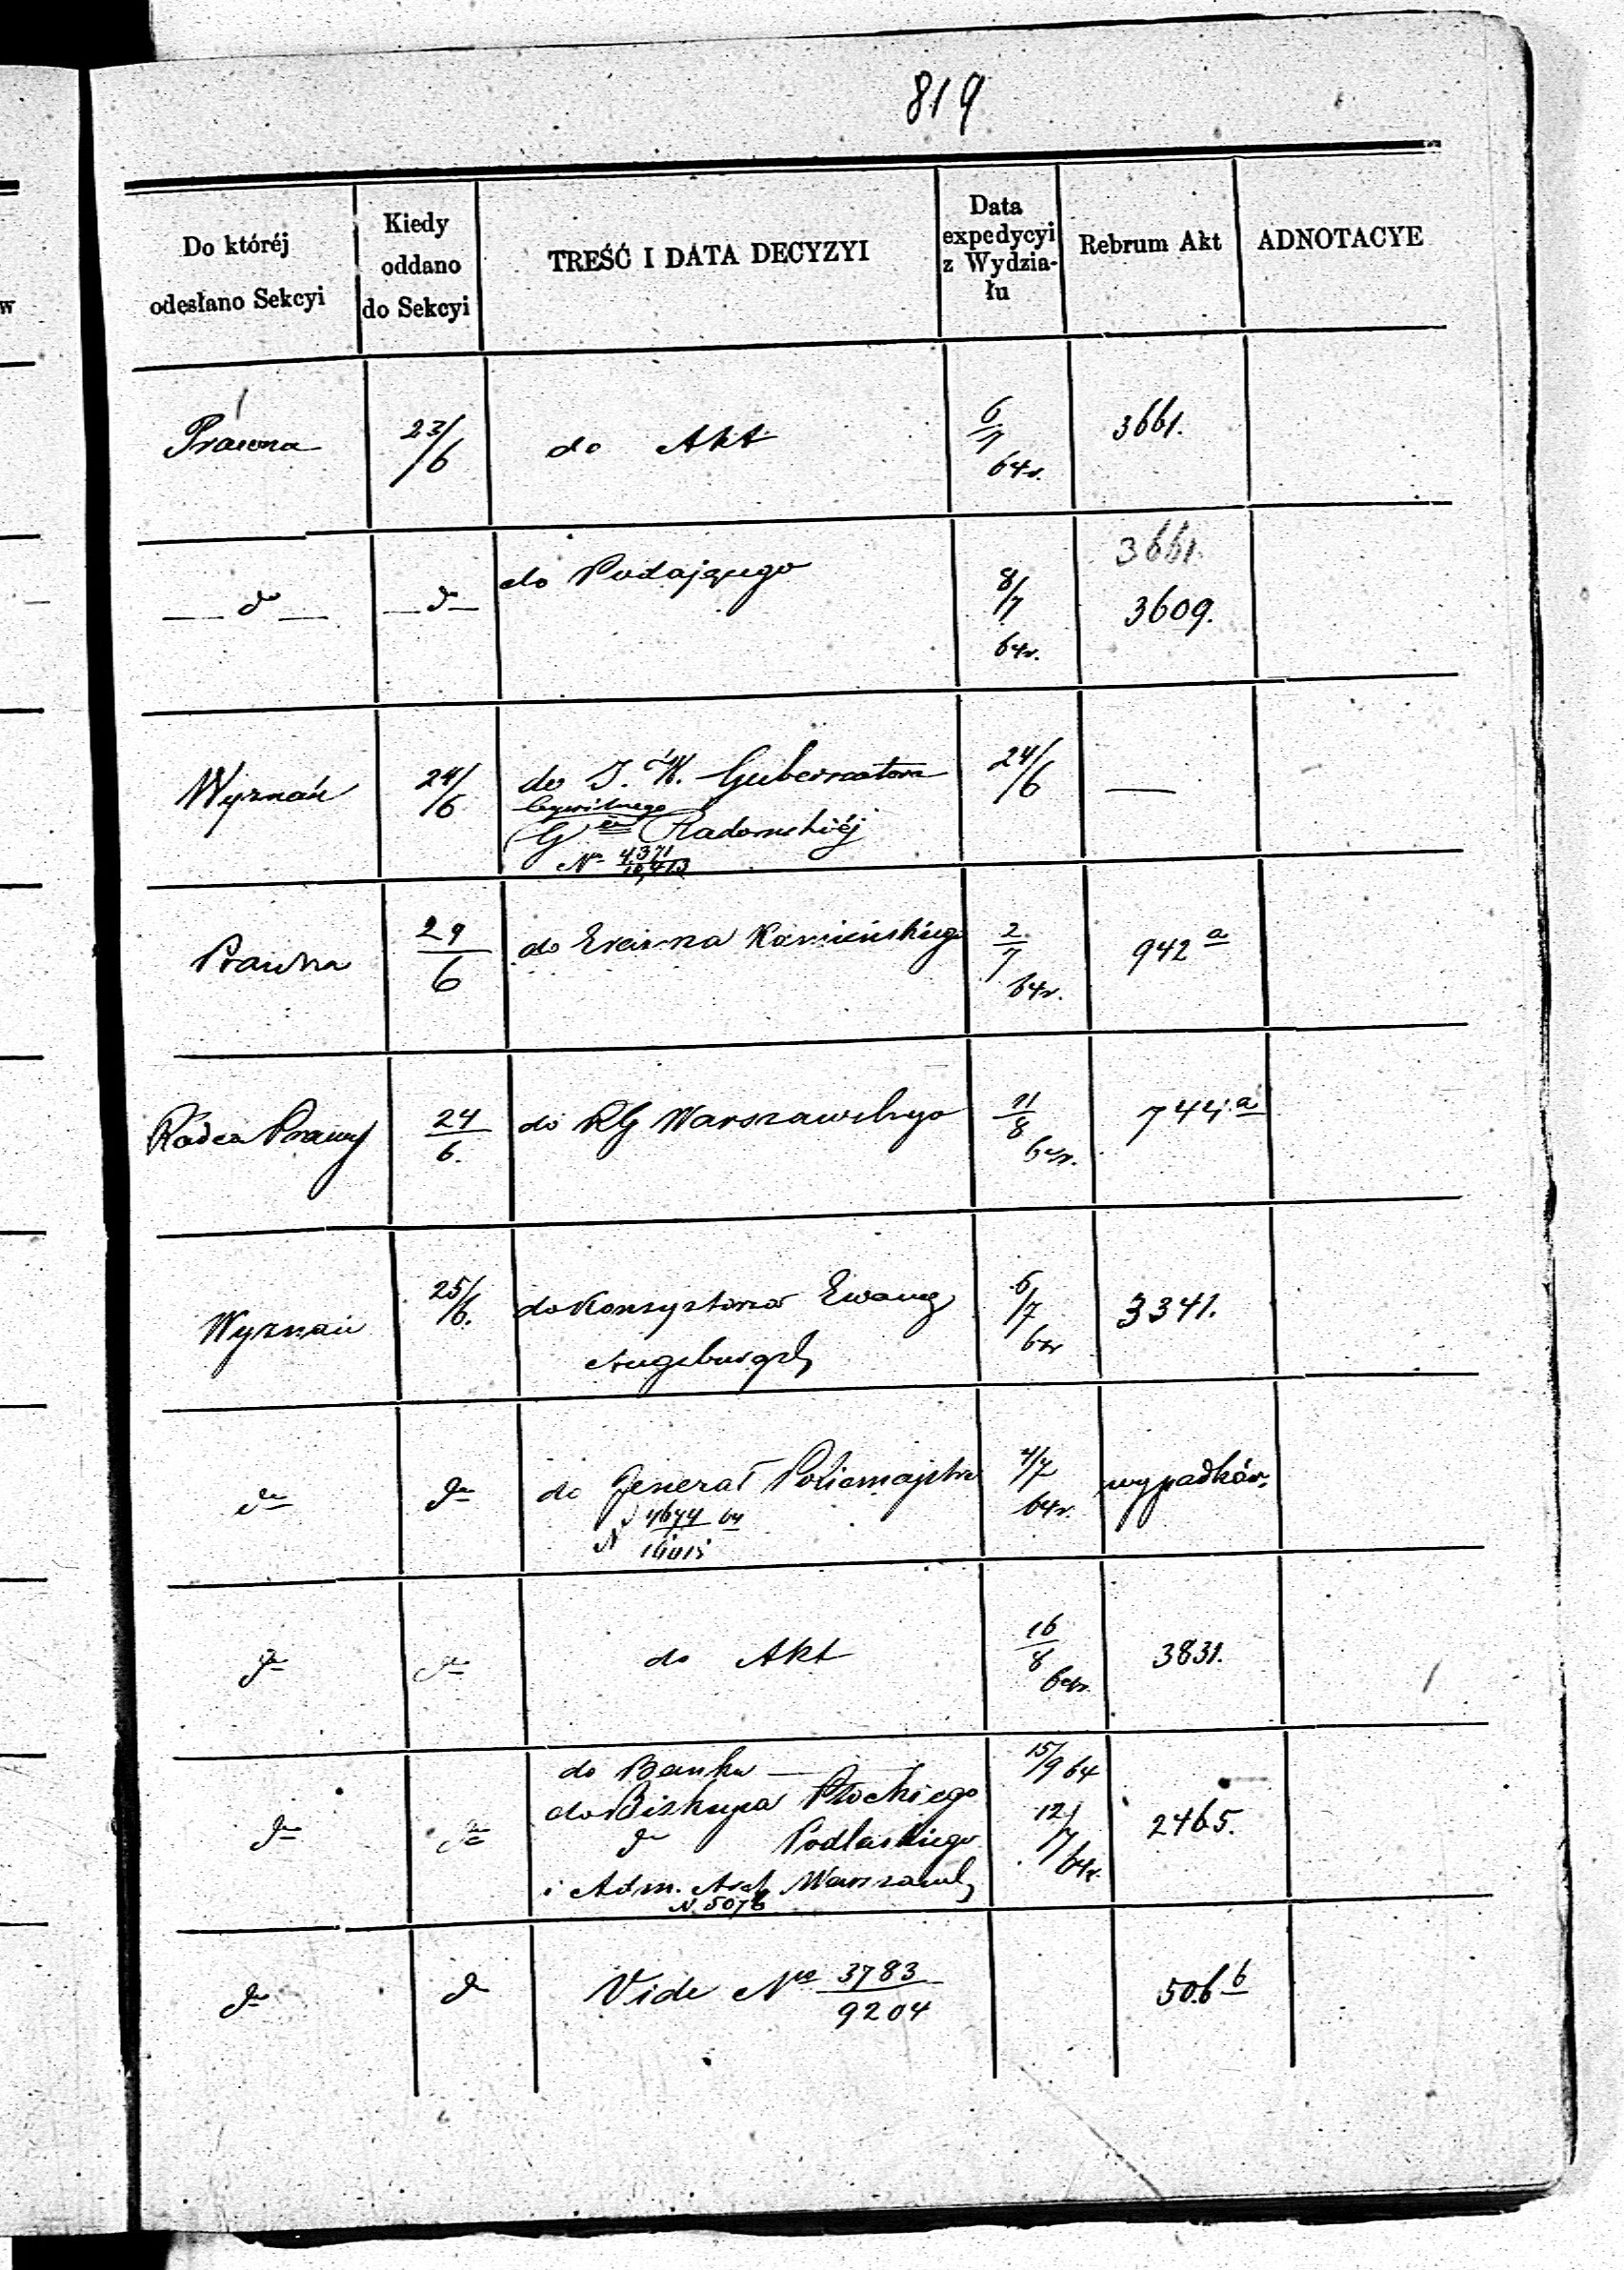 819
Do któréj odesłano Sekcyi
Kiedy oddano do Sekcyi
TREŚĆ I DATA DECYZYI
Data expedycyi z Wydzia-łu
Rebrum Akt
ADNOTACYE
w
Prawna 23/6 do Akt 6/7 64r. 3661.
3661.
do do do Podającego 8/7 64r. 3609.
Wyznań 24/6 do J. W. Gubernatora 24/6 —
Cywilnego
Gii Radomskiéj
No 4371/10,413
Prawna 29/6 do Kamieńskiego 2/7 64r. 942 a
Radca Prawy 24/6. do RG Warszawskiego 11/8 64r. 744 a
Wyznań 25/6. do Konsystorza Ewang 6/7 64r 3341.
Augsburgsk
do do do Jenerał Policmajstra 4/7 64r. wypadków.
N 4644/14015 64
do do do Akt 16/8 64r. 3831.
do Banku — 15/9 64
do Biskupa Płockiego
do do do Podlaskiego 12/7 64r. 2465.
i Adm. Arch Warszawsk
N. 5076
do do Vide No 3783/9204 506 b